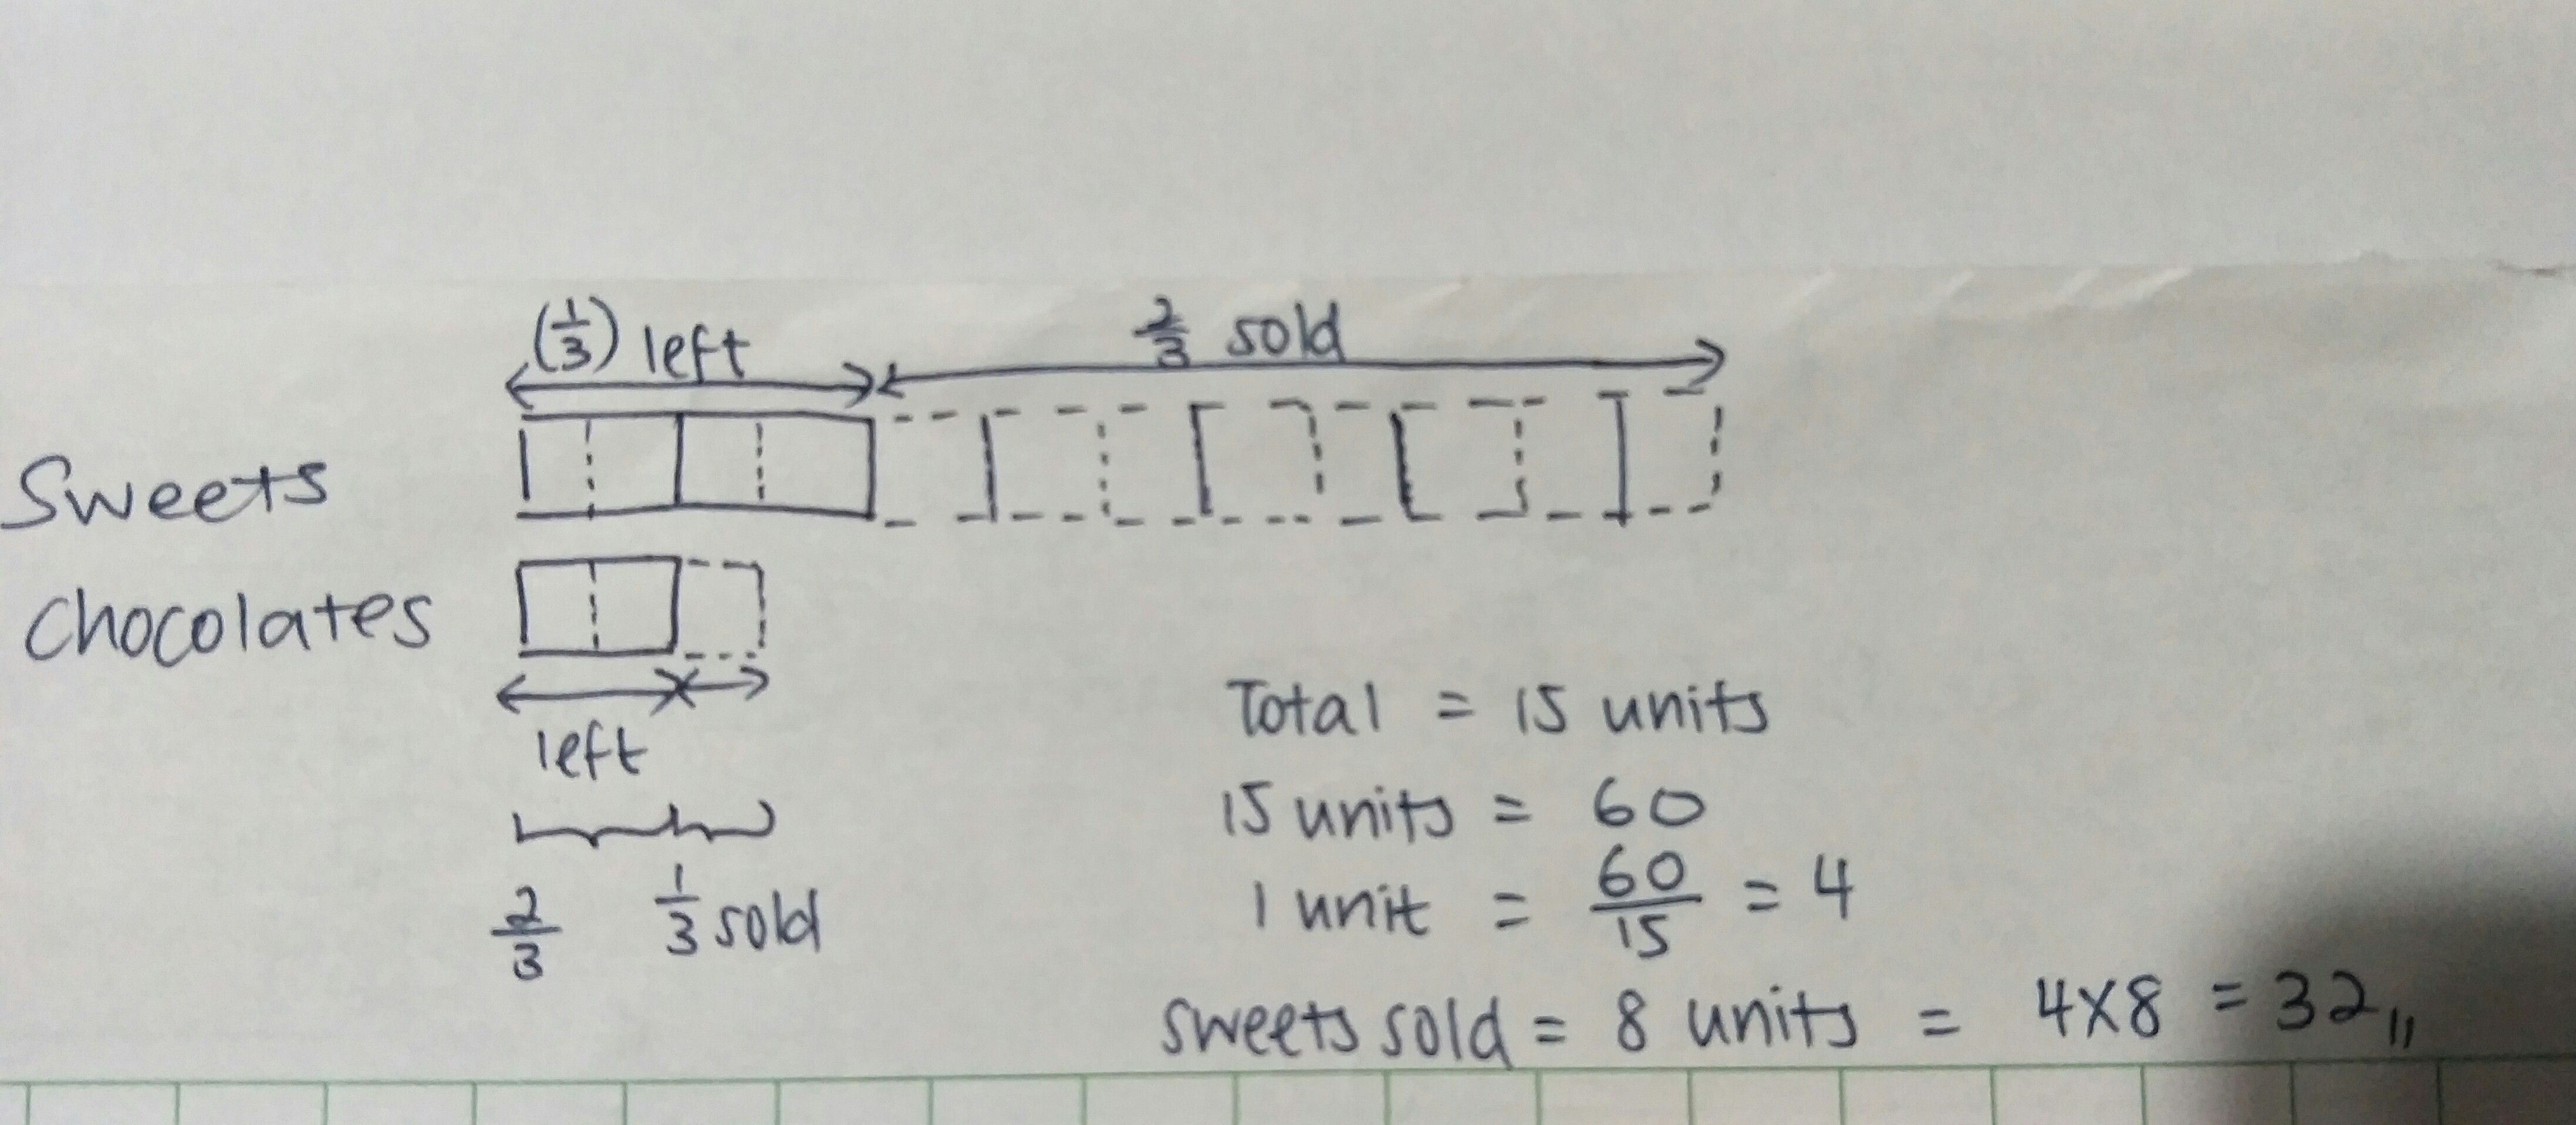 (1/3) left 2/3 sold
Sweets
Chocolates
left
2/3 1/3 sold
Total = 15 units
15 units = 60
1 unit = 60/15 = 4
Sweets sold = 8 units = 4x8 = 32,,